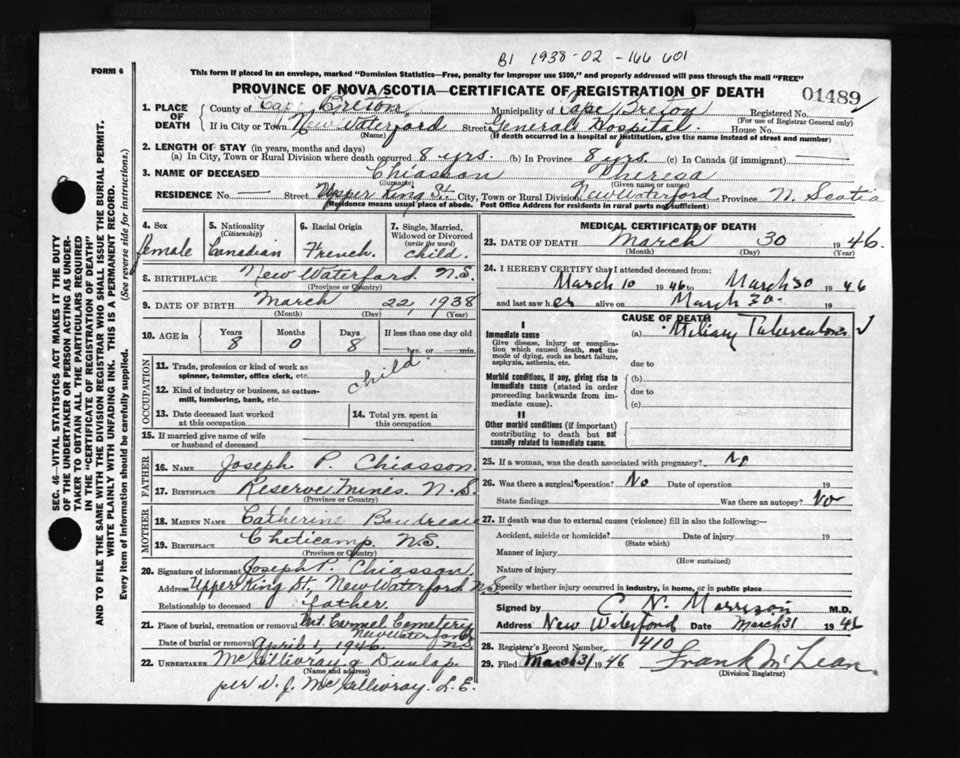 B1 1938-02-166 601
FORM 6
This form if placed in an envelope, marked "Dominion Statistics—Free, penalty for improper use $300," and properly addressed will pass through the mail "FREE"
PROVINCE OF NOVA SCOTIA—CERTIFICATE OF REGISTRATION OF DEATH
01489
1. PLACE OF DEATH
County of Cape Breton Municipality of Cape Breton Registered No.
(For use of Registrar General only)
If in City or Town New Waterford Street General Hospital House No.
(Name) (If death occurred in a hospital or institution, give its name instead of street and number)
2. LENGTH OF STAY (in years, months and days)
(a) In City, Town or Rural Division where death occurred 8 yrs. (b) In Province 8 yrs. (c) In Canada (if immigrant) —
3. NAME OF DECEASED Chiasson Theresa
(Surname) (Given name or names)
RESIDENCE No. — Street Upper King St. City, Town or Rural Division New Waterford, Province N. Scotia
(Residence means usual place of abode. Post Office Address for residents in rural parts not sufficient)
4. Sex female
5. Nationality (Citizenship) Canadian
6. Racial Origin French.
7. Single, Married, Widowed or Divorced (write the word) child.
8. BIRTHPLACE New Waterford N.S.
(Province or Country)
9. DATE OF BIRTH March 22, 1938
(Month) (Day) (Year)
10. AGE in Years 8 Months 0 Days 8 If less than one day old
hrs. or min.
OCCUPATION
11. Trade, profession or kind of work as spinner, teamster, office clerk, etc. child.
12. Kind of industry or business, as cotton-mill, lumbering, bank, etc.
13. Date deceased last worked at this occupation
14. Total yrs. spent in this occupation
15. If married give name of wife or husband of deceased
FATHER
16. NAME Joseph P. Chiasson
17. BIRTHPLACE Reserve Mines. N.S.
(Province or Country)
MOTHER
18. MAIDEN NAME Catherine Boudreau
19. BIRTHPLACE Cheticamp, N.S.
(Province or Country)
20. Signature of informant Joseph P. Chiasson
Address Upper King St, New Waterford N.S.
Relationship to deceased father.
21. Place of burial, cremation or removal Mt. Carmel Cemetery
New Waterford
Date of burial or removal April 1, 1946 N.S.
22. UNDERTAKER McGillivray & Dunlap
(Name and address)
per V. J. McGillivray. L.E.
MEDICAL CERTIFICATE OF DEATH
23. DATE OF DEATH March 30 1946.
(Month) (Day) (Year)
24. I HEREBY CERTIFY that I attended deceased from:
March 10 1946 to March 30 1946
and last saw her alive on March 30. 19
CAUSE OF DEATH
I
Immediate cause (a) Miliary Tuberculosis
Give disease, injury or complication which caused death, not the mode of dying, such as heart failure, asphyxia, asthenia, etc.
due to
Morbid conditions, if any, giving rise to immediate cause (stated in order proceeding backwards from immediate cause).
(b)
due to
(c)
II
Other morbid conditions (if important) contributing to death but not causally related to immediate cause.
25. If a woman, was the death associated with pregnancy? No
26. Was there a surgical operation? No Date of operation 19
State findings Was there an autopsy? No
27. If death was due to external causes (violence) fill in also the following:—
Accident, suicide or homicide? Date of injury 19
(State which)
Manner of injury
(How sustained)
Nature of injury
Specify whether injury occurred in industry, in home, or in public place
Signed by C. N. Morrison M.D.
Address New Waterford Date March 31 1946
28. Registrar's Record Number 410
29. Filed March 31 1946 Frank McLean
(Division Registrar)
SEC. 46—VITAL STATISTICS ACT MAKES IT THE DUTY
OF THE UNDERTAKER OR PERSON ACTING AS UNDER-
TAKER TO OBTAIN ALL THE PARTICULARS REQUIRED
IN THE "CERTIFICATE OF REGISTRATION OF DEATH"
AND TO FILE THE SAME WITH THE DIVISION REGISTRAR WHO SHALL ISSUE THE BURIAL PERMIT.
WRITE PLAINLY WITH UNFADING INK. THIS IS A PERMANENT RECORD.
Every item of information should be carefully supplied. (See reverse side for instructions.)